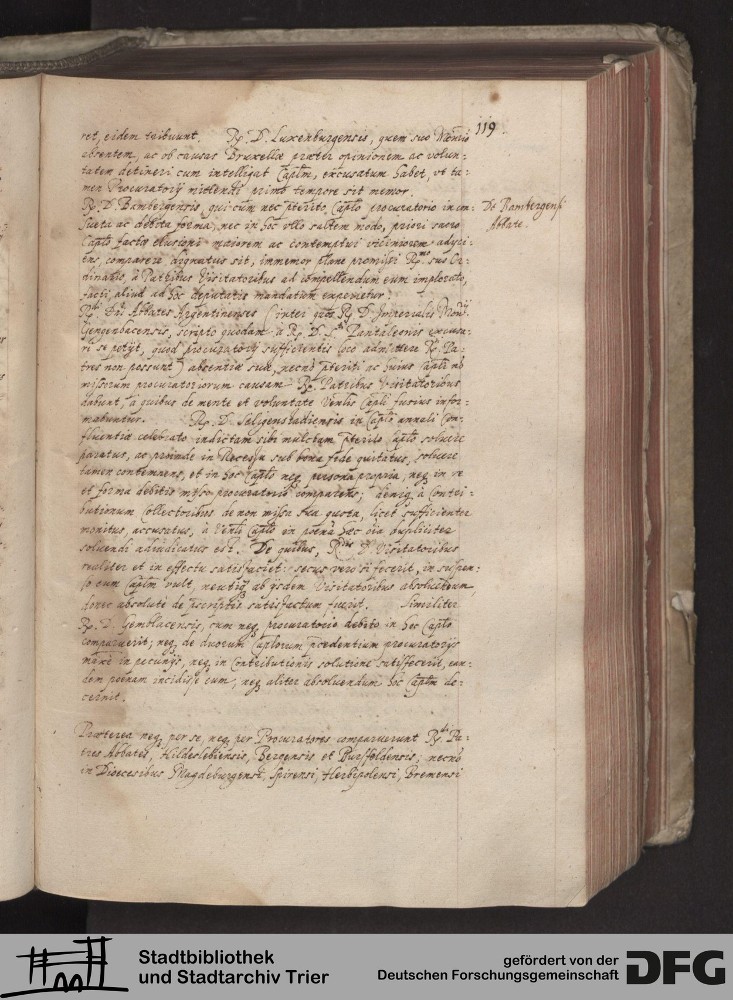 119.
ret, eidem tribuunt. Rs. D. Luxenburgensis, quem suo Mon̄rio
absentem, ac ob causas Bruxellæ præter opinionem ac volun:
tatem detineri cum intelligat Caplm̄, excusatum habet, vt ta:
men Procuratorij mittendi primo tempore sit memor.
R. D. Bambergensis, qui cum nec pterito Caplo procuratorio in con:
sueta ac debita forma, nec in hoc vllo saltem modo, priori sacro
Caplo factæ elusioni maiorem ac contemptui viciniorem adijci:
ens, comparere dignatus sit, immemor plane promissi Rmo suo Or:
dinario, à Patribus Visitatoribus ad compellendum eum implorato,
facti, aliud ad hoc deputatis mandatum experietur.
De Bambergensi
Abbate.
Rdi Dni Abbates Argentinenses (inter quos R. D. Immercalis Monrij
Gengenbacensis, scripto quodam à R. D. Sti Pantaleonis excusa:
ri se petijt, quod procuratorij sufficientis loco admittere R. Pa:
tres non possunt) absentiæ suæ, necnō pteriti ac huius Capli nō
missorum procuratoriorum causam Rdis Patribus Visitatoribus
dabunt, à quibus de mente et voluntate Venlis Capli fusius infor:
mabuntur. R. D. Seligenstadiensis in Caplo annali Con:
fluentiæ celebrato indictam sibi mulctam pterito Caplo soluere
paratus, ac proinde in Recessu sub bona fide quitatus, soluere
tamen contemnens, et in hoc Caplo neq₃ persona propria, neq₃ in re
et forma debitis misso procuratorio comparens; deniq₃ à Contri:
butionum Collectoribus de non missa sua quota, licet sufficienter
monitus, accusatus, à Venli Caplo in poenā hæc oīa dupliciter
soluendi adiudicatus est. De quibus, Rdis D. Visitatoribus
realiter et in effectu satisfaciet: secus vero si fecerit, in suspen:
so eum Caplm vult, neutiq₃ ab ijsdem Visitatoribus absoluendum
donec absolutè de pscriptis satisfactum fuerit. Similiter
R. D. Gemblacensis, cum neq₃ procuratorio debito in hoc Caplo
comparuerit; neq₃ de duorum Caplorum pcedentium procuratorijs
in pecunijs, neq₃ in Contributionis solutione satisfecerit, ean:
dem poenam incidisse eum, neq₃ aliter absoluendum hoc Caplm de:
cernit.
Præterea neq₃ per se, neq₃ per Procuratores comparuerunt Rdi Pa:
tres Abbates, Hildeslebiensis, Bergensis et Bursfeldensis; necnō
in Dioecesibus Magdeburgensi, Spirensi, Herbipolensi, Bremensi
Stadtbibliothek
und Stadtarchiv Trier
gefördert von der
Deutschen Forschungsgemeinschaft
DFG